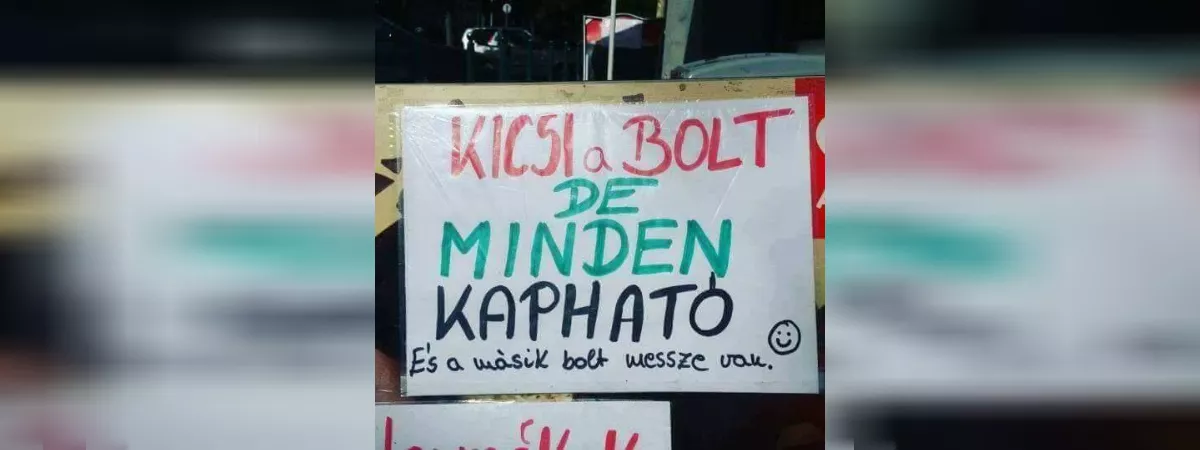 KICSI a BOLT
DE
MINDEN
KAPHATÓ
És a másik bolt messze van.